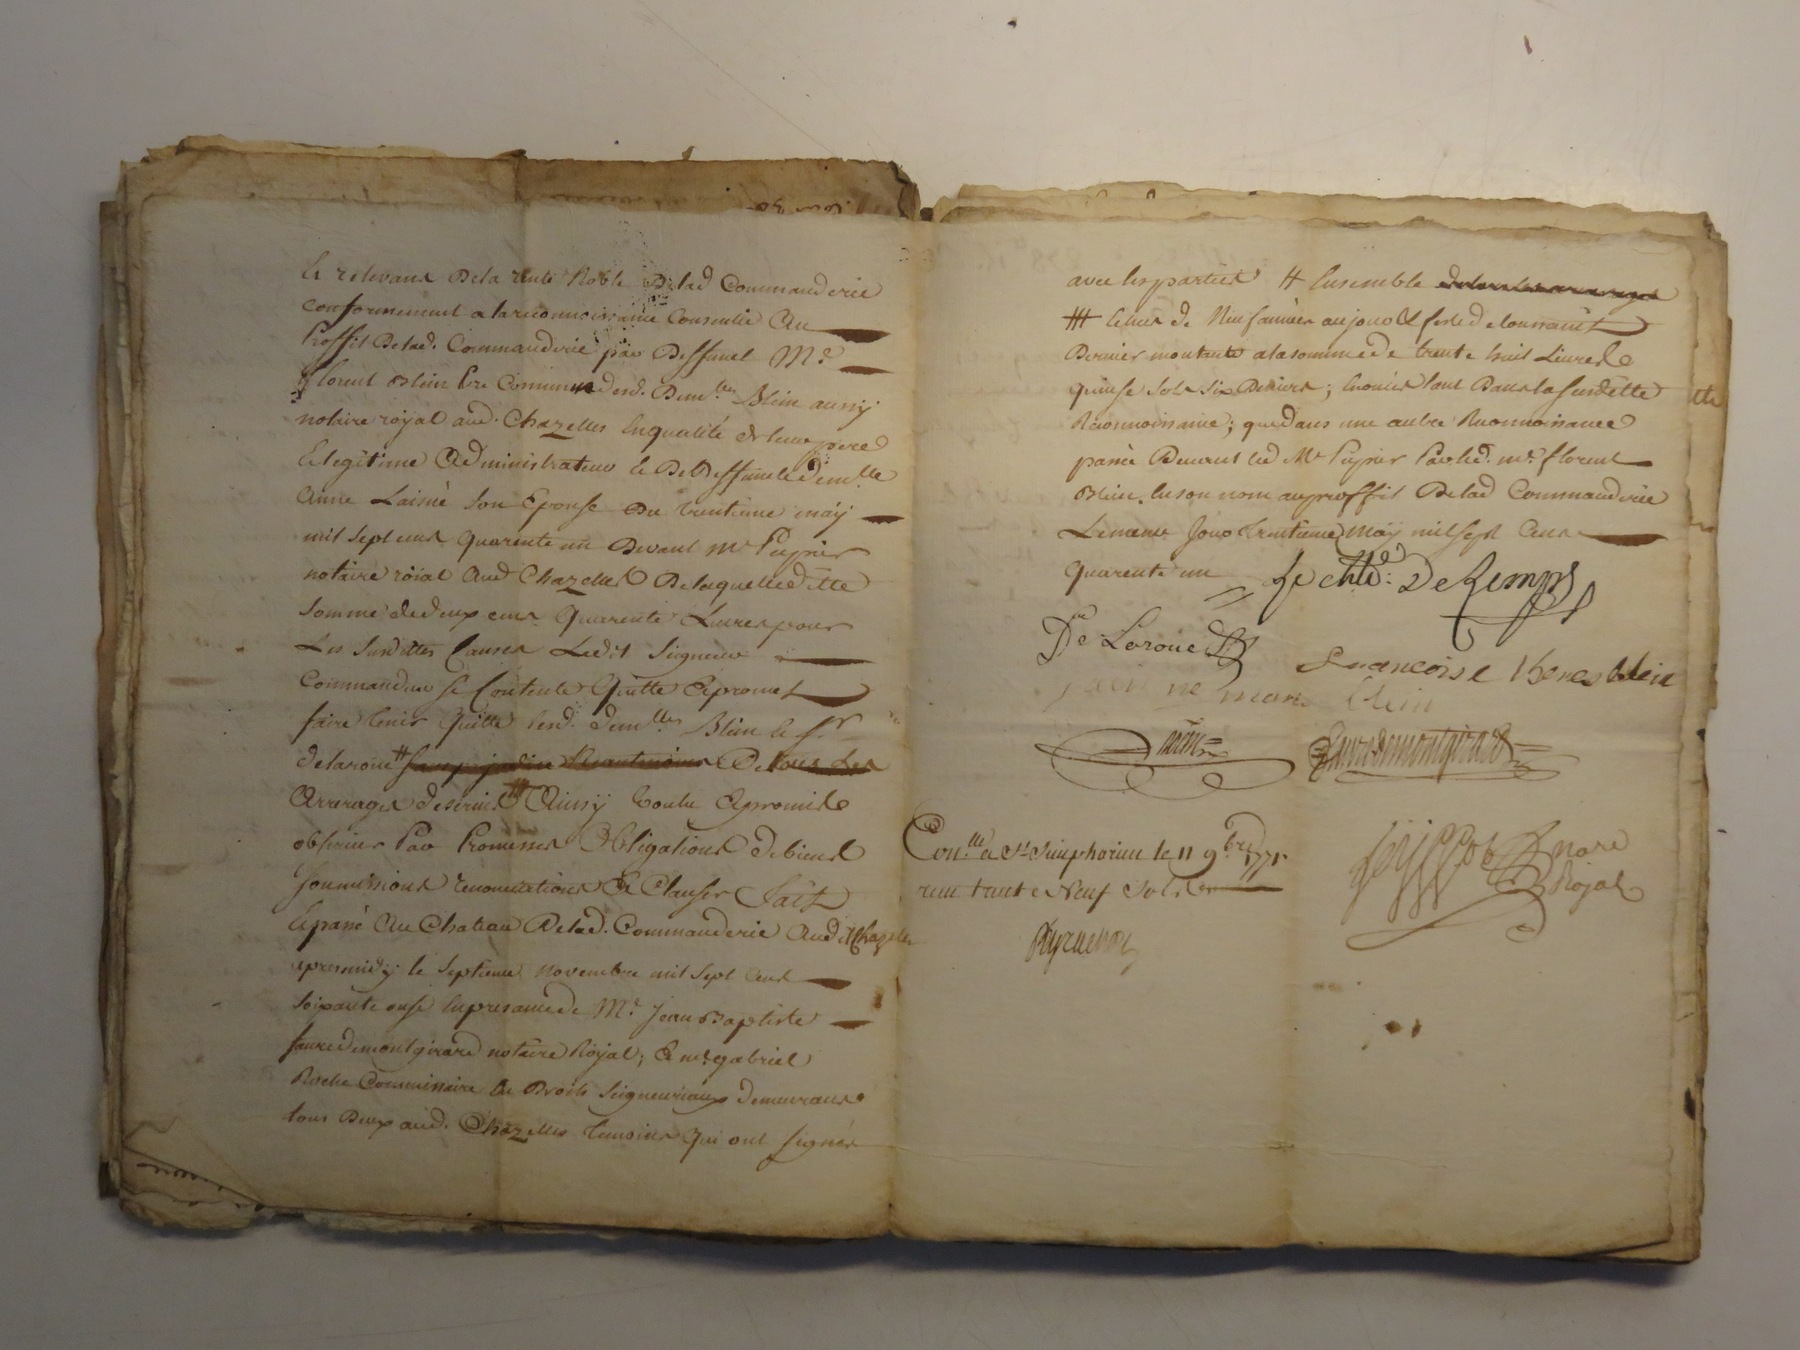 Et relevans De la rente Noble De lad Commanderie
conformement a la reconnoissance Consentie Au
Proffit De lad. Commanderie par Deffunct Me.
florent Blein Pre Commun desd. Demlles Blein aussy
notaire royal aud. Chazelles En qualité de leur pere
Et legitime Administrateur Et De Deffunte demlle
Anne Lainé Son Epouse Du trentieme may
mil sept cens quarente un Devant Me Peyrier
notaire roial Aud Chazelles De laquelle ditte
somme de deux cens quarente Livres pour
Les Susdittes Causes Ledit Seigneur
Commandeur se Contente Quitte Et promet
faire tenir Quitte lesd. demlles Blein le Sr
delaroue # De tous Les
Arrerages deservis ## Ainsy voulu Et promis
observer Par Promesses Obligations de biens
soumissions renonciations Et Clauses Fait
Et passé Au Chateau De lad. Commanderie Aud Chazelles
apres midy le Septieme novembre mil sept cens
soixante onse En presance de Me. Jean Baptiste
faure de montgirard notaire Royal; Et me gabriel
Roche Commissaire En Droits Seigneuriaux demeurans
tous Deux aud. Chazelles temoins qui ont signés
avec les parties # Ensemble
## Echus de Neuf années au jour Et feste de toussaint
Dernier montants a la somme de trente huit Livres
quinse sols six Deniers; Enoncés tant Dans la susditte
Reconnoissance; que dans une autre Reconnoissance
passée Devant led Me Peyrier Par led. me. florent
Blein En son nom au proffit De lad Commanderie
Le meme Jour trentieme may mil sept Cens
Quarente un
Le chlr. De Remps
De Laroue
francoise Blein
Blein
fauredemontgirard
nore
Royal
Conllé a St Simphorien le 11 9bre 1771
recu trente Neuf Sols